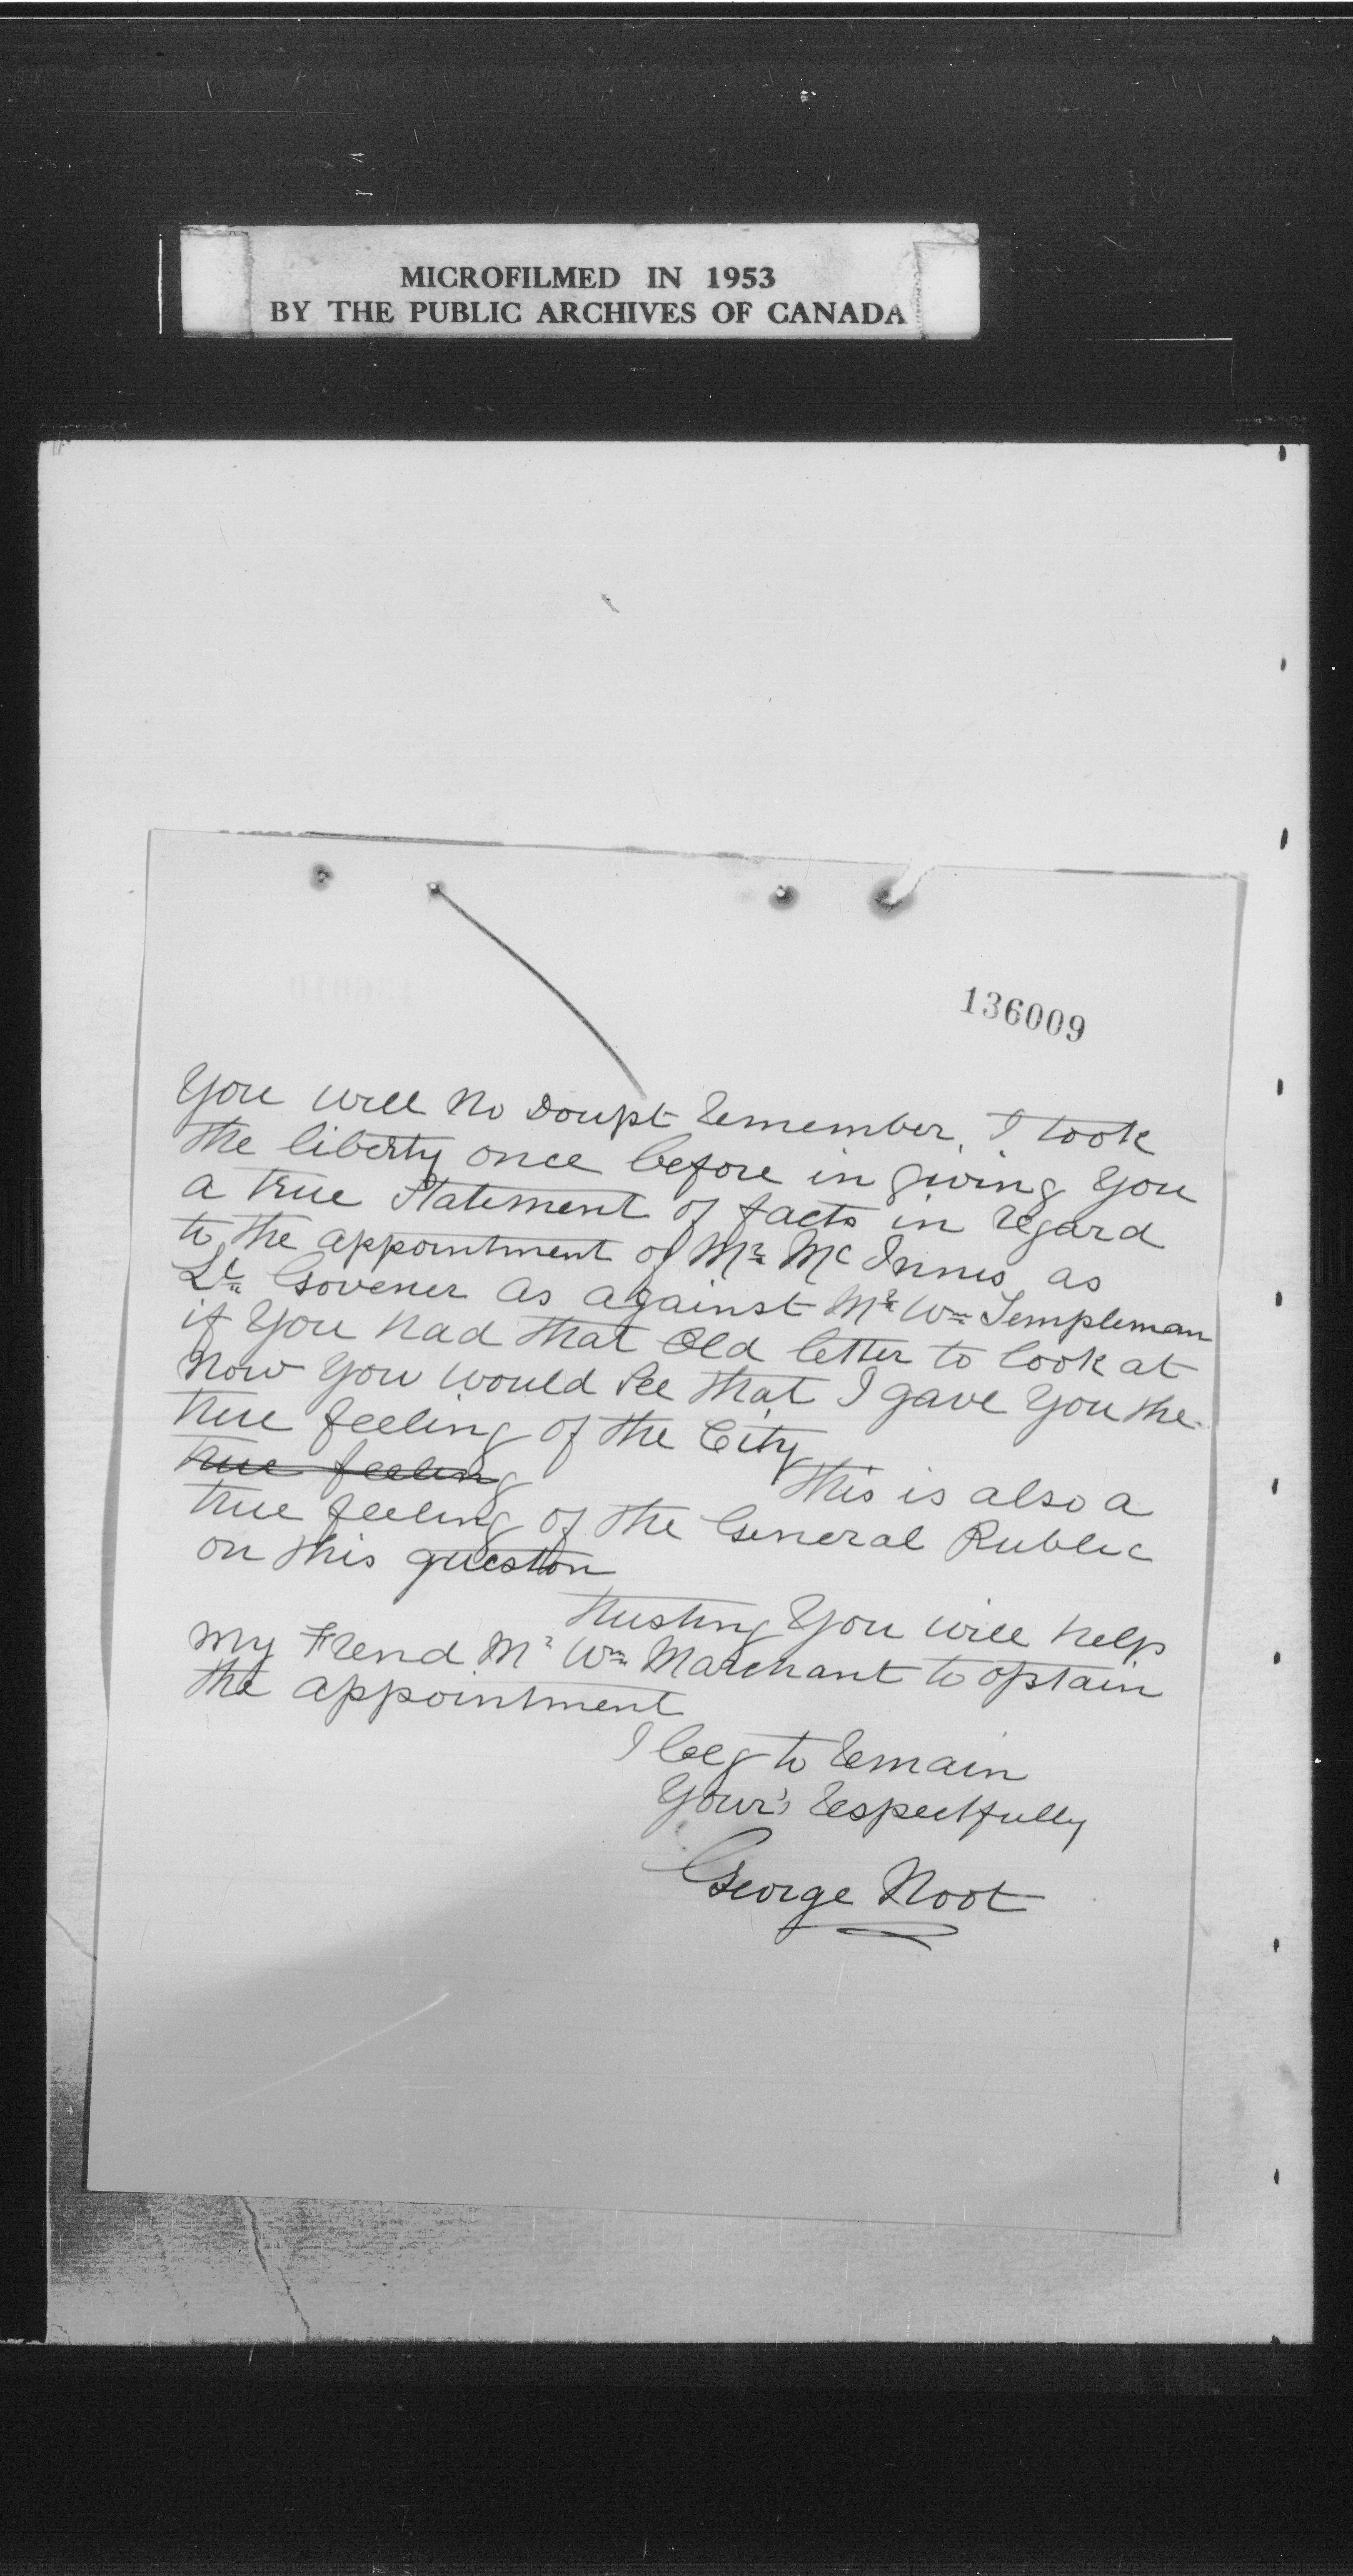 MICROFILMED IN 1953
BY THE PUBLIC ARCHIVES OF CANADA
136009
You will No Doupt Remember, I took
the liberty once before in giving You
a true Statement of facts in regard
to the appointment of Mr Mc Innes as
Lt Govener as against Mr Wm Templeman
if You had that Old letter to look at
Now You would See that I gave You the
true feeling of the City
true feeling
This is also a
true feeling of the General Public
on this question
trusting You will help
my Frend Mr Wm Marchant to optain
the appointment
I beg to Remain
Your's Respectfully
George Noot